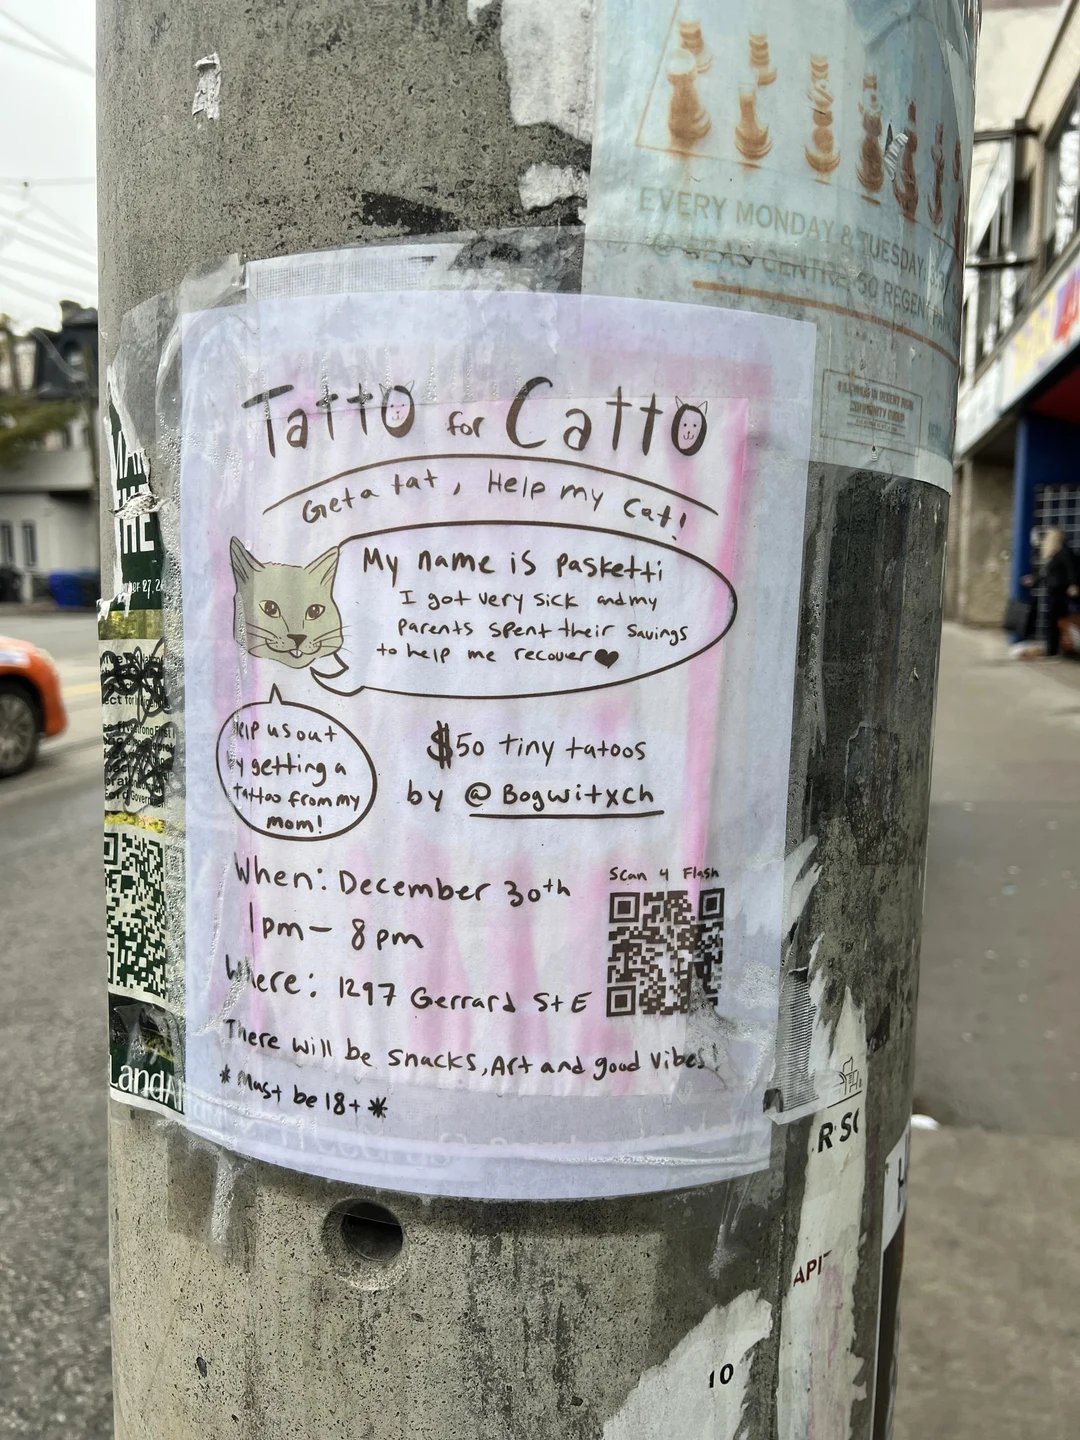 EVERY MONDAY & TUESDAY
TattO for CattO
Get a tat, Help my cat!
My name is Pasketti
I got very sick and my
parents spent their savings
to help me recover
us out
getting a
tattoo from my
mom!
$50 tiny tatoos
by @Bogwitxch
When: December 30th
1pm - 8pm
Where: 1297 Gerrard St E
Scan 4 Flash
There will be snacks, Art and good vibes!
* Must be 18+ *
THE
LandA
R SC
API
10